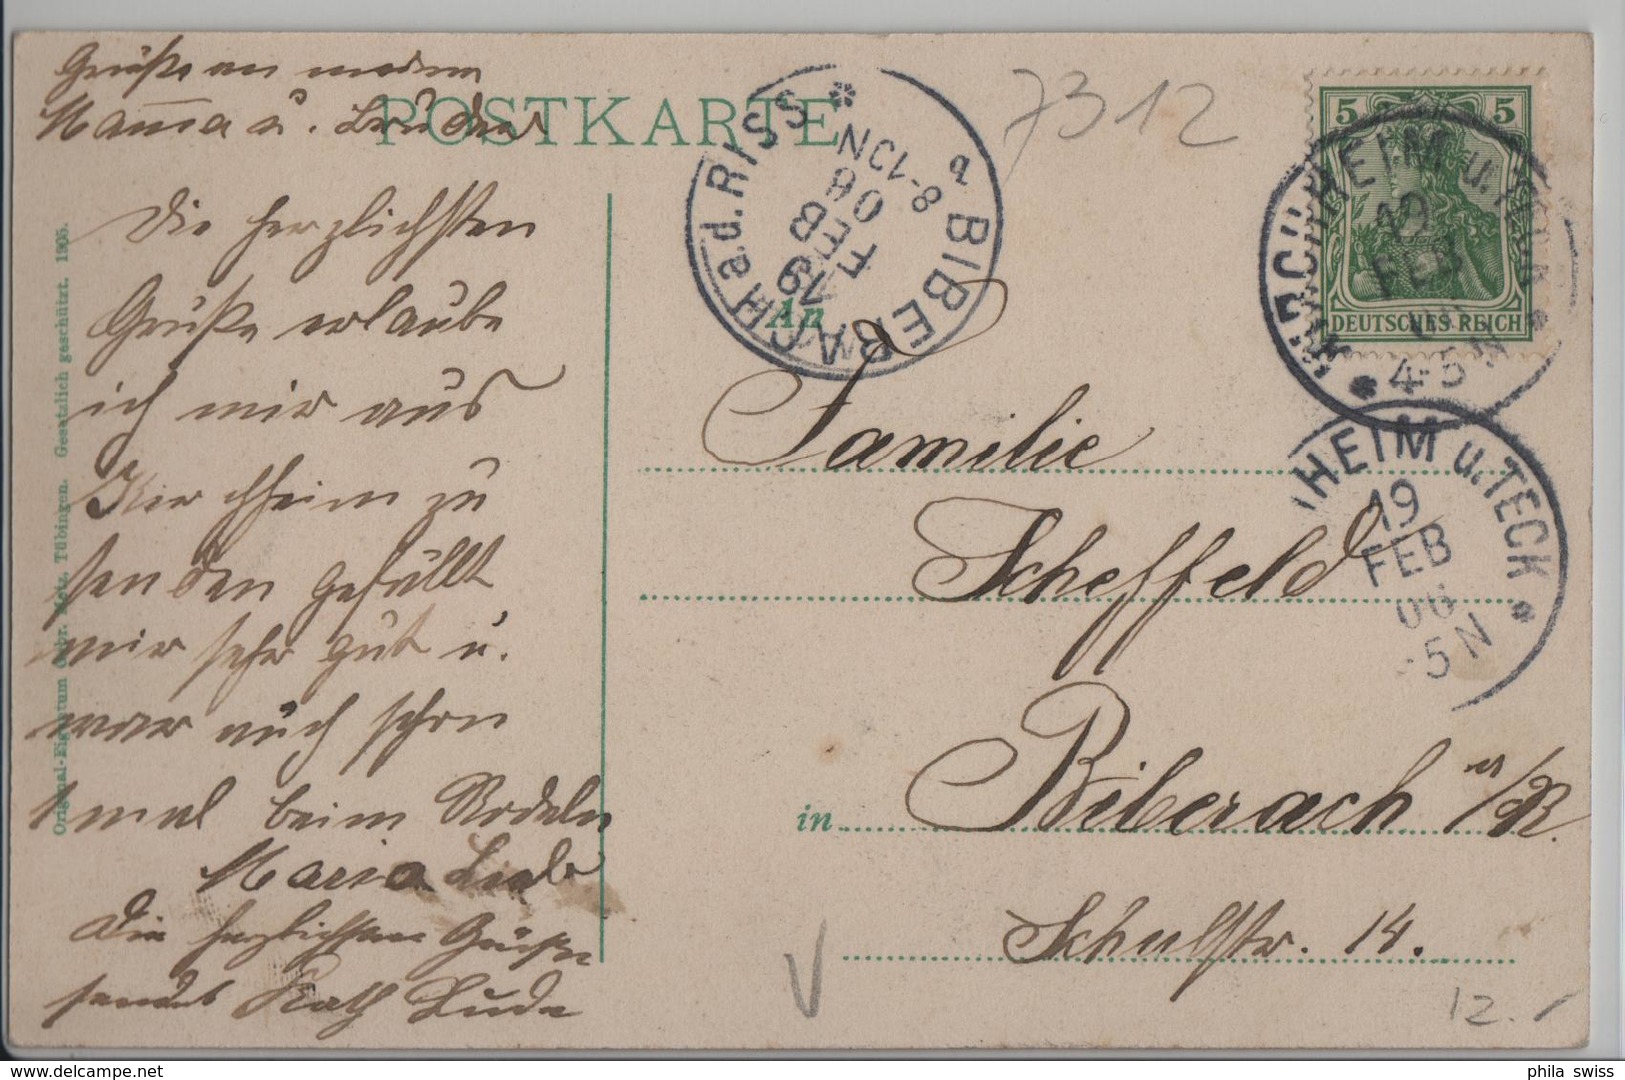 Grüße an meine
Mama u. Bruder
POSTKARTE
7312
Die herzlichsten
Grüße erlaube
ich mir aus
Kirchheim zu
senden gefällt
mir sehr gut u.
war auch schon
1 mal beim Rodeln
Maria
Die herzlichsten Grüße
sendet Kath
Original-Eigentum Gebr. Metz, Tübingen. Gesetzlich geschützt. 1905.
BIBERACH a.d. RISS
19
FEB
06
8-10N
a
5 5
DEUTSCHES REICH
KIRCHHEIM u. TECK
19
FEB
06
4-5N
HEIM u. TECK
19
FEB
06
-5N
An
Familie
Scheffeld
in Biberach a/R.
Schulstr. 14.
12.
phila swiss